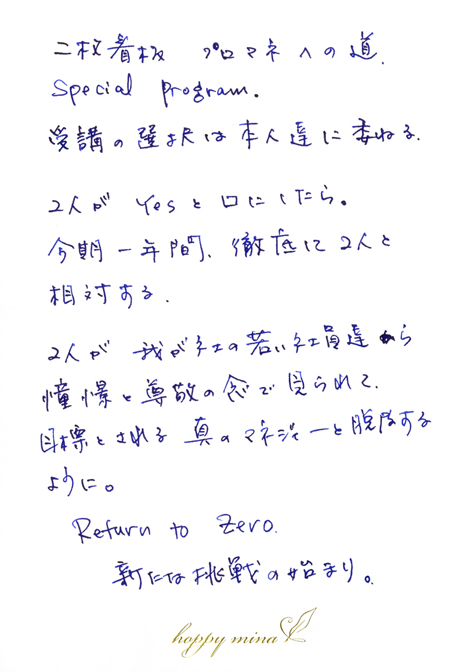 二枚看板 プロマネへの道.
Special program.
受講の選択は本人達に委ねる.
2人が Yesと口にしたら。
今期一年間、徹底に2人と
相対する.
2人が 我が社の若い社員達から
憧憬と尊敬の念で見られて.
目標とされる 真のマネジャーと脱皮する
ように。
Return to Zero.
新たな挑戦の始まり。
happy mina